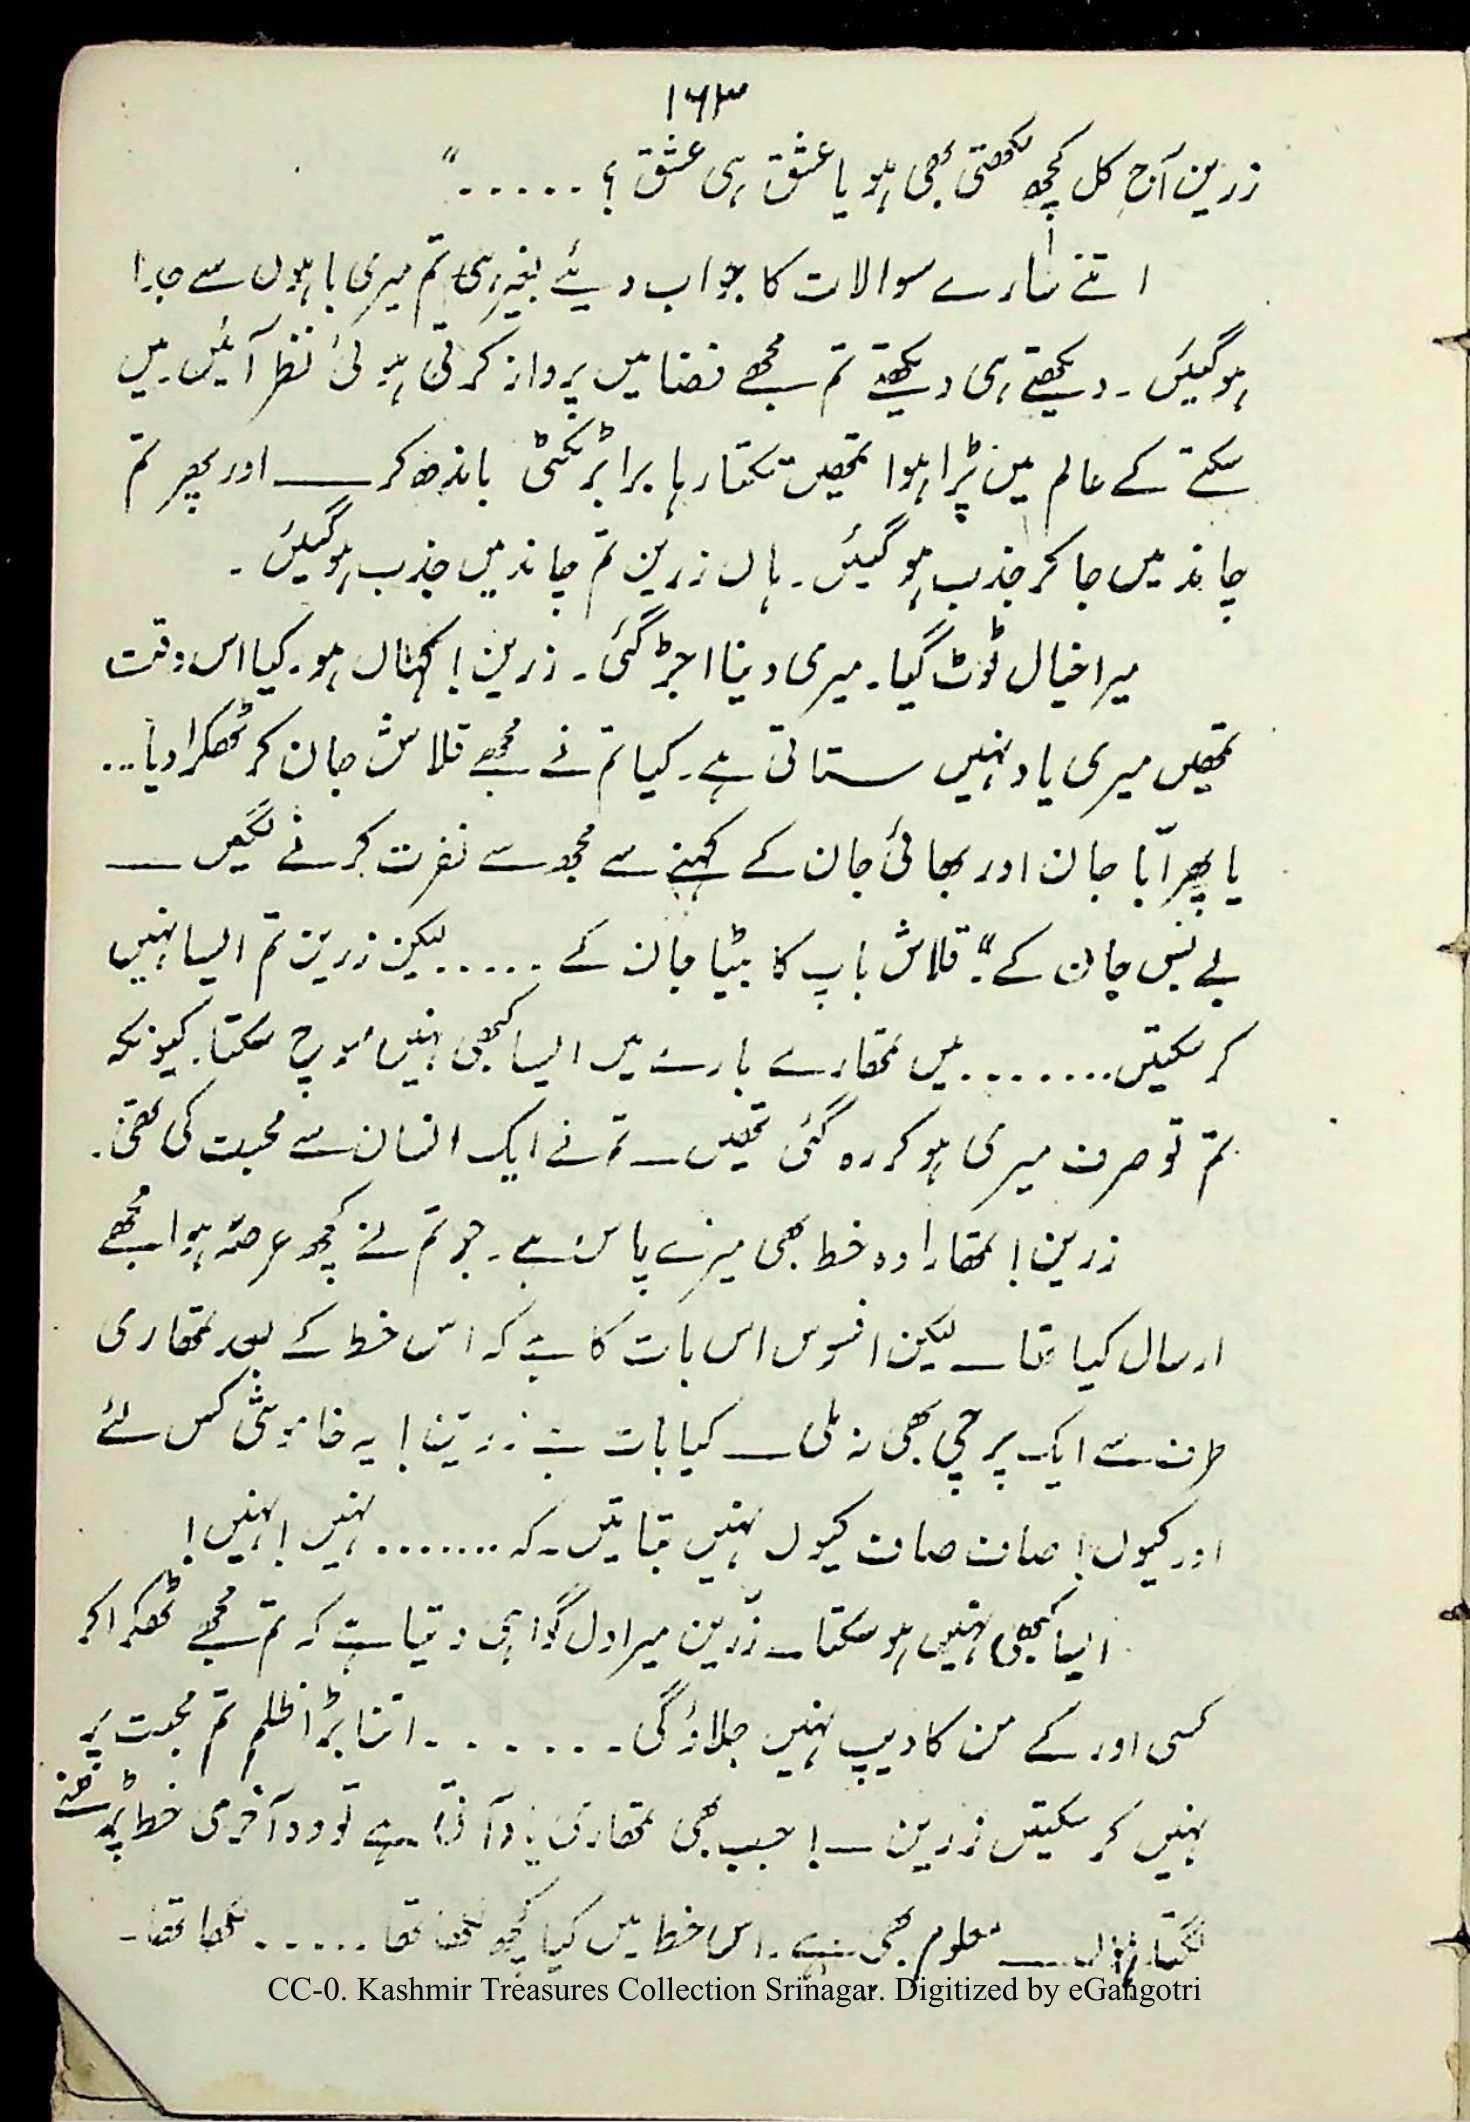 ۱۶۳
زرین آج کل کچھ لکھتی بھی ہو یا عشق ہی عشق ؟ ۔۔۔۔۔"
اتنے سارے سوالات کا جواب دیئے بغیر ہی تم میری باہوں سے جدا
ہو گیئں ۔ دیکھتے ہی دیکھتے تم مجھے فضا میں پرواز کرتی ہوئی نظر آئیں ۔ میں
سکتے کے عالم میں پڑا ہوا تمھیں تکتا رہا برابر ٹکٹی باندھ کر ــــ اور پھر تم
چاند میں جا کر جذب ہو گیئں ۔ ہاں زرین تم چاند میں جذب ہو گیئں ۔
میرا خیال ٹوٹ گیا ۔ میری دنیا اجڑ گئی ۔ زرین ! کہاں ہو ۔ کیا اس وقت
تمھیں میری یاد نہیں ستاتی ہے ۔ کیا تم نے مجھے قلاش جان کر ٹھکرا دیا ...
یا پھر ابّا جان اور بھائی جان کے کہنے سے مجھ سے نفرت کرنے لگیں ــــ
بے بس جان کے ؟" قلاش باپ کا بیٹا جان کے ..... لیکن زرین تم ایسا نہیں
کر سکتیں ........ میں تمھارے بارے میں ایسا کبھی نہیں سوچ سکتا ۔ کیونکہ
تم تو صرف میری ہو کر رہ گئی تھیں ــــ تم نے ایک انسان سے محبت کی تھی ۔
زرین ! تمھارا وہ خط بھی میرے پاس ہے ۔ جو تم نے کچھ عرصہ ہوا مجھے
ارسال کیا تھا ــــ لیکن افسوس اس بات کا ہے کہ اس خط کے بعد تمھاری
طرف سے ایک پرچی بھی نہ ملی ــــ کیا بات ہے زرین ! یہ خاموشی کس لئے
اور کیوں ! صاف صاف کیوں نہیں بتاتیں ۔ کہ ....... نہیں ! نہیں !
ایسا کبھی نہیں ہو سکتا ــ زرّین میرا دل گواہی دیتا ہے کہ تم مجھے ٹھکرا کر
کسی اور کے من کا دیپ نہیں جلاؤ گی ۔ ۔ ۔ ۔ ۔ ۔ ۔ اتنا بڑا ظلم تم محبت پر
نہیں کر سکیتں زرین ــــ ! جب بھی تمھاری یاد آتی ہے تو وہ آخری خط پڑھنے
لگتا ہوں ــــ معلوم بھی ہے ۔ اس خط میں کیا کچھ لکھا تھا ..... لکھا تھا ۔
CC-0. Kashmir Treasures Collection Srinagar. Digitized by eGangotri